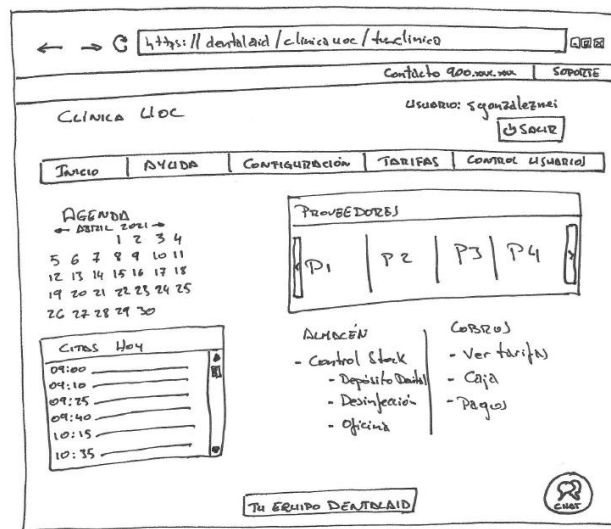 https://dentalaid/clinicauoc/tuclinica
Contacto 900.xxx.xxx | SOPORTE
CLÍNICA UOC
USUARIO: sgonzaleznei
SALIR
INICIO | AYUDA | CONFIGURACIÓN | TARIFAS | CONTROL USUARIOS
AGENDA
← ABRIL 2021 →
1 2 3 4
5 6 7 8 9 10 11
12 13 14 15 16 17 18
19 20 21 22 23 24 25
26 27 28 29 30
CITAS HOY
09:00
09:10
09:25
09:40
10:15
10:35
PROVEEDORES
P1 | P2 | P3 | P4
ALMACÉN
- Control Stock
- Depósito Dental
- Desinfección
- Oficina
COBROS
- Ver tarifas
- Caja
- Pagos
TU EQUIPO DENTALAID
CHAT